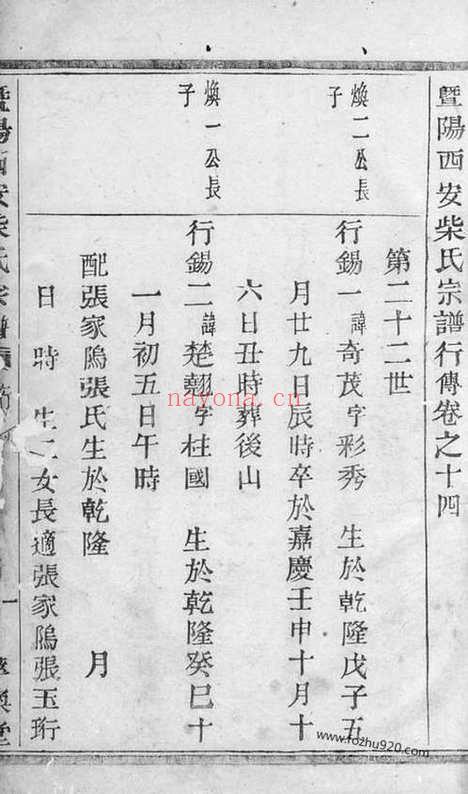 暨陽西安柴氏宗譜行傳卷之十四
第二十二世
煥二公長子
行錫一諱奇茂字彩秀 生於乾隆戊子五
月廿九日辰時卒於嘉慶壬申十月十
六日丑時葬後山
煥一公長子
行錫二諱楚翹字柱國 生於乾隆癸巳十
一月初五日午時
配張家隖張氏生於乾隆 月
日 時 生二女長適張家隖張玉珩
暨陽西安柴氏宗譜
一
nayona.cn
www.fozhu920.com